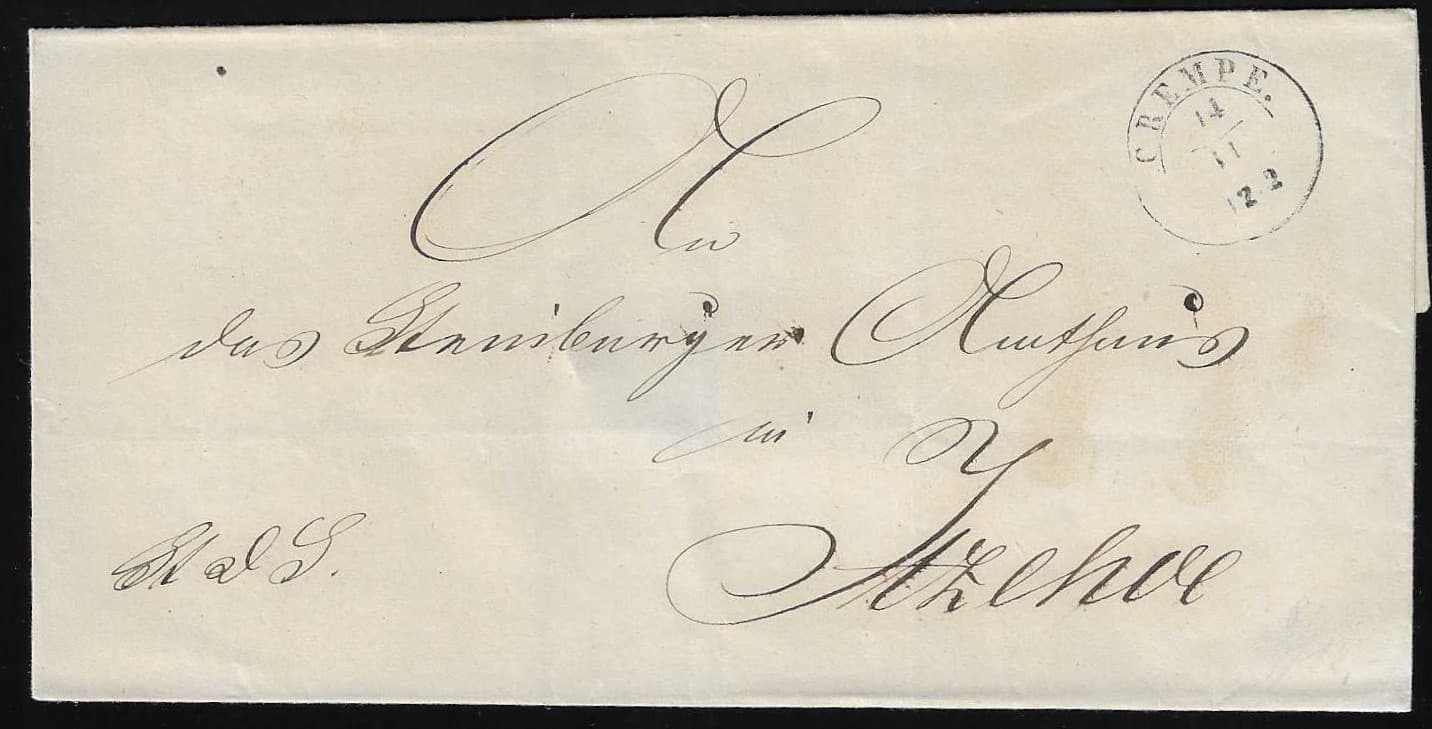 CREMPE.
14
11
12-2
An
das Steinburger Amthaus
in
Itzehoe
K d S.